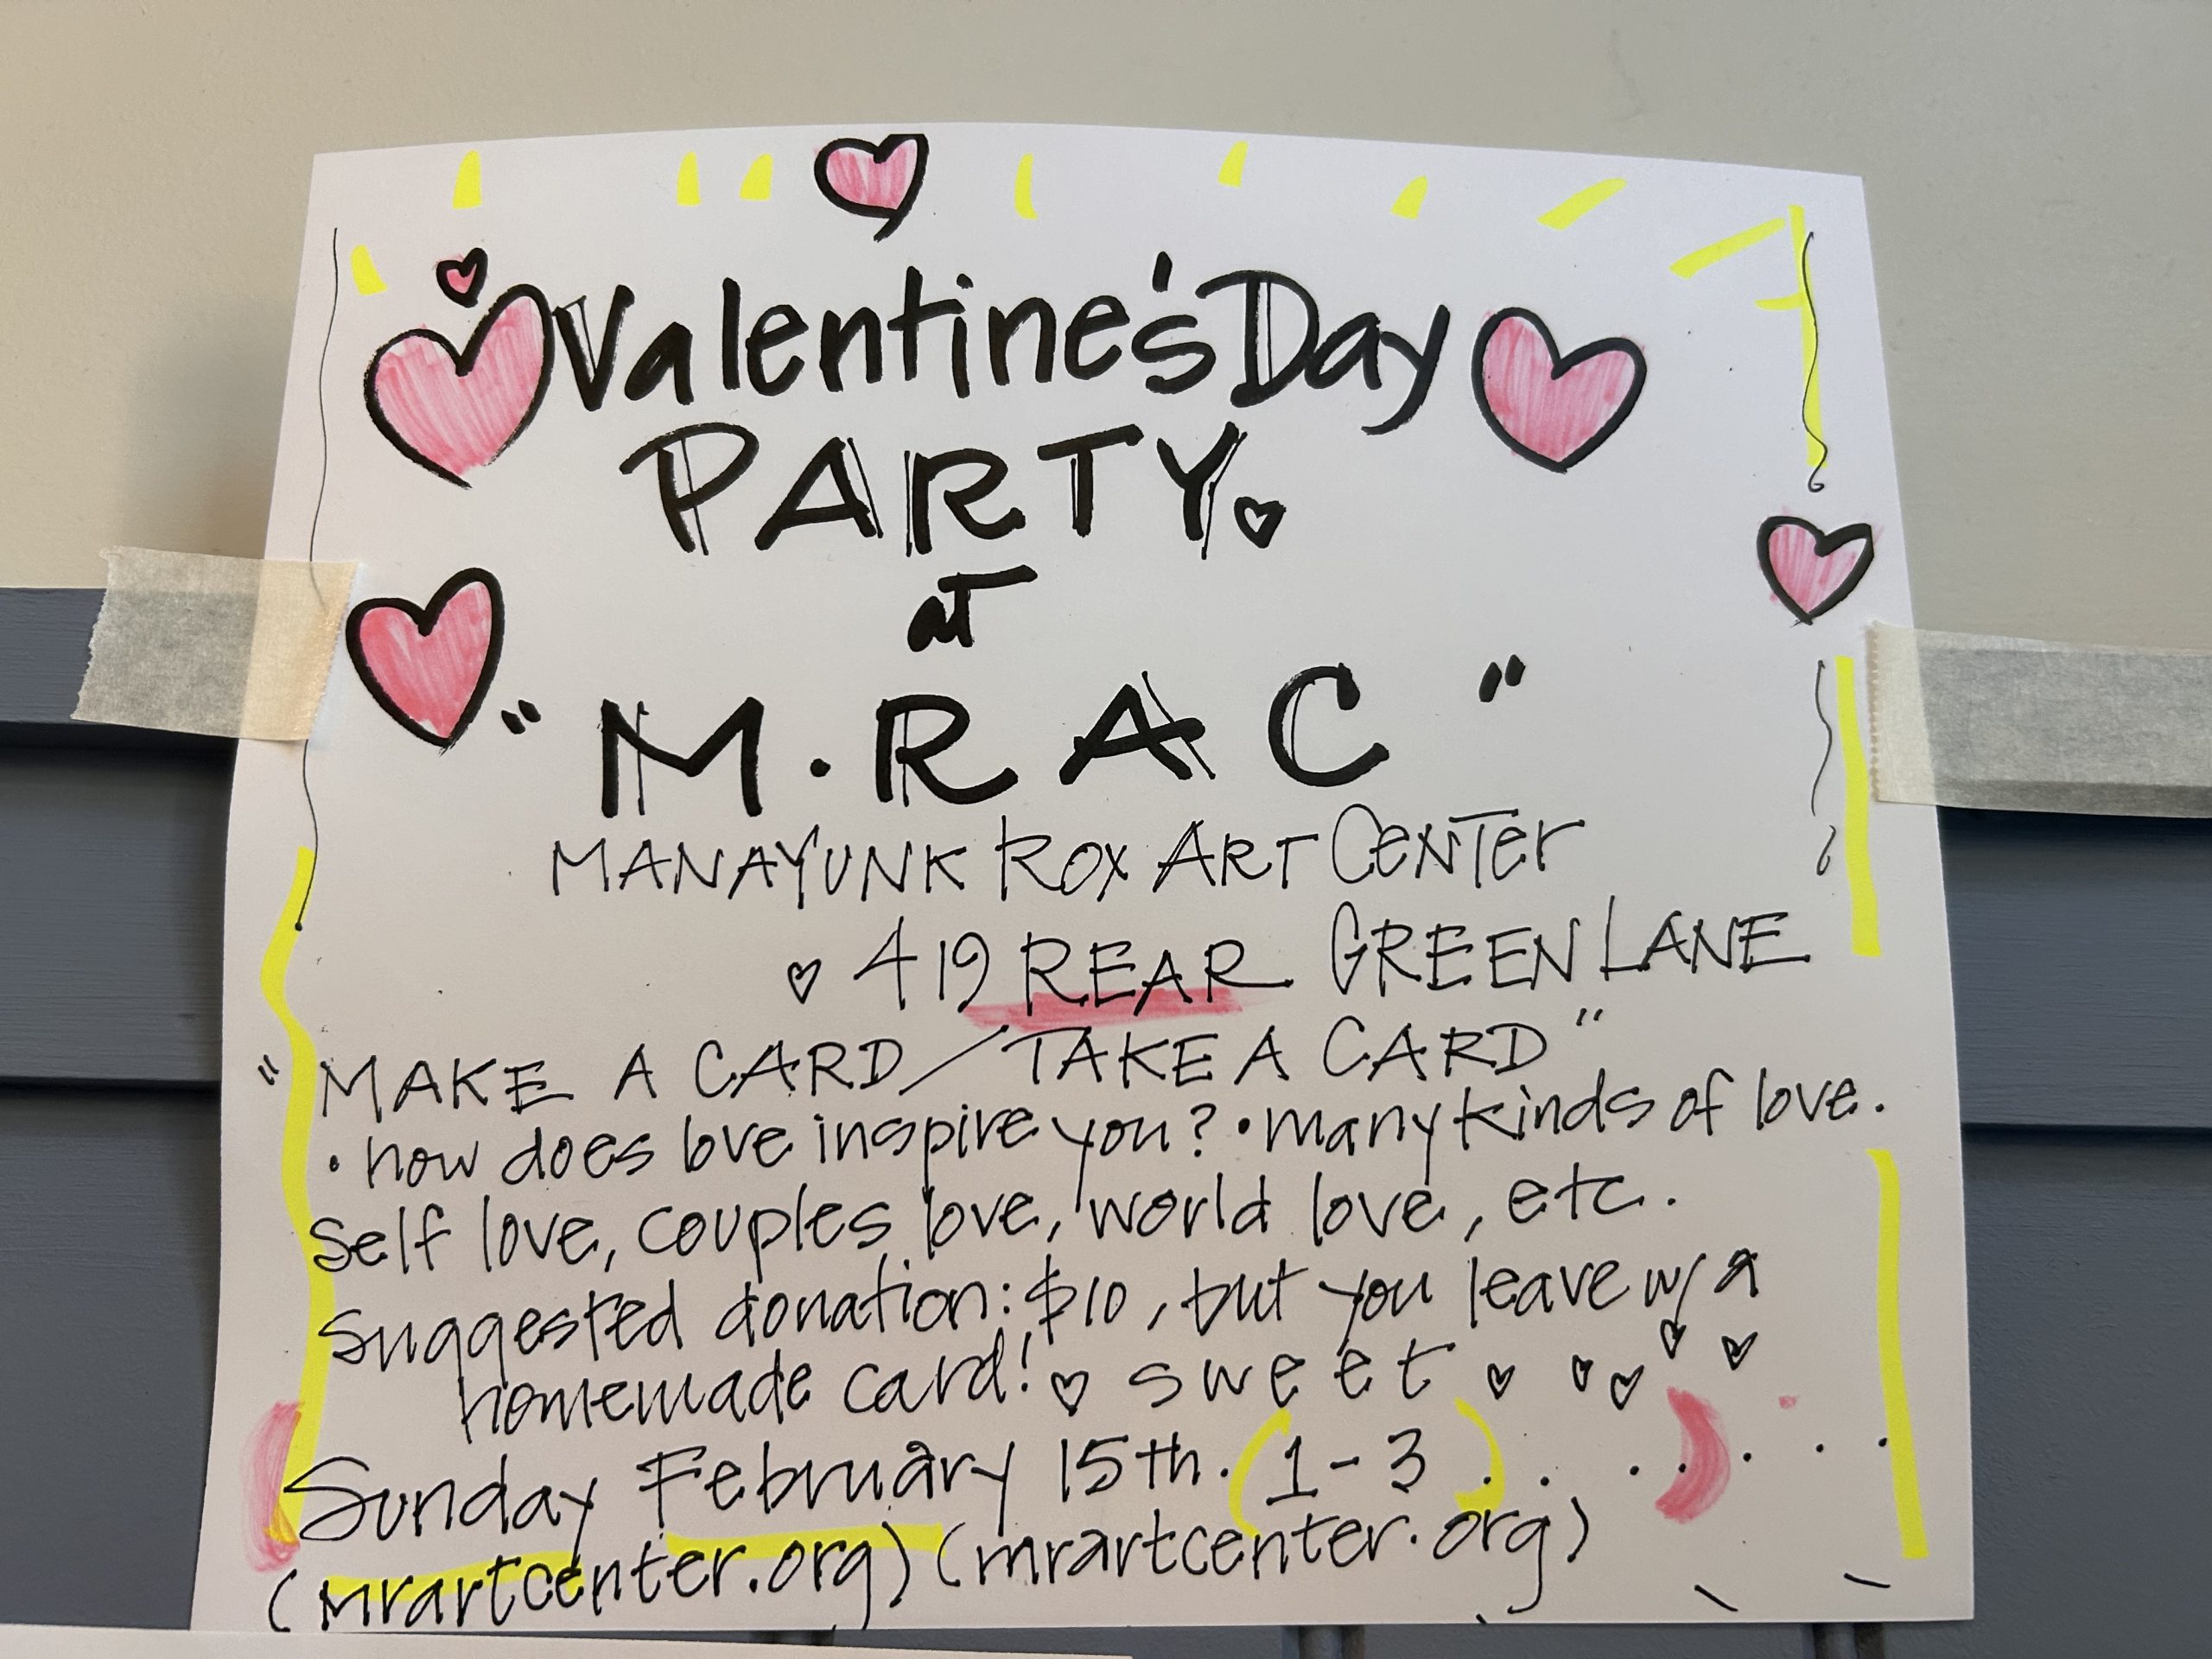 Valentine's Day
PARTY
at
"M.RAC"
MANAYUNK ROX ART CENTER
419 REAR GREEN LANE
"MAKE A CARD/TAKE A CARD"
• how does love inspire you? • many kinds of love.
Self love, couples love, world love, etc.
Suggested donation: $10, but you leave w/ a
homemade card! sweet
Sunday February 15th. (1-3)......
(mrartcenter.org) (mrartcenter.org)